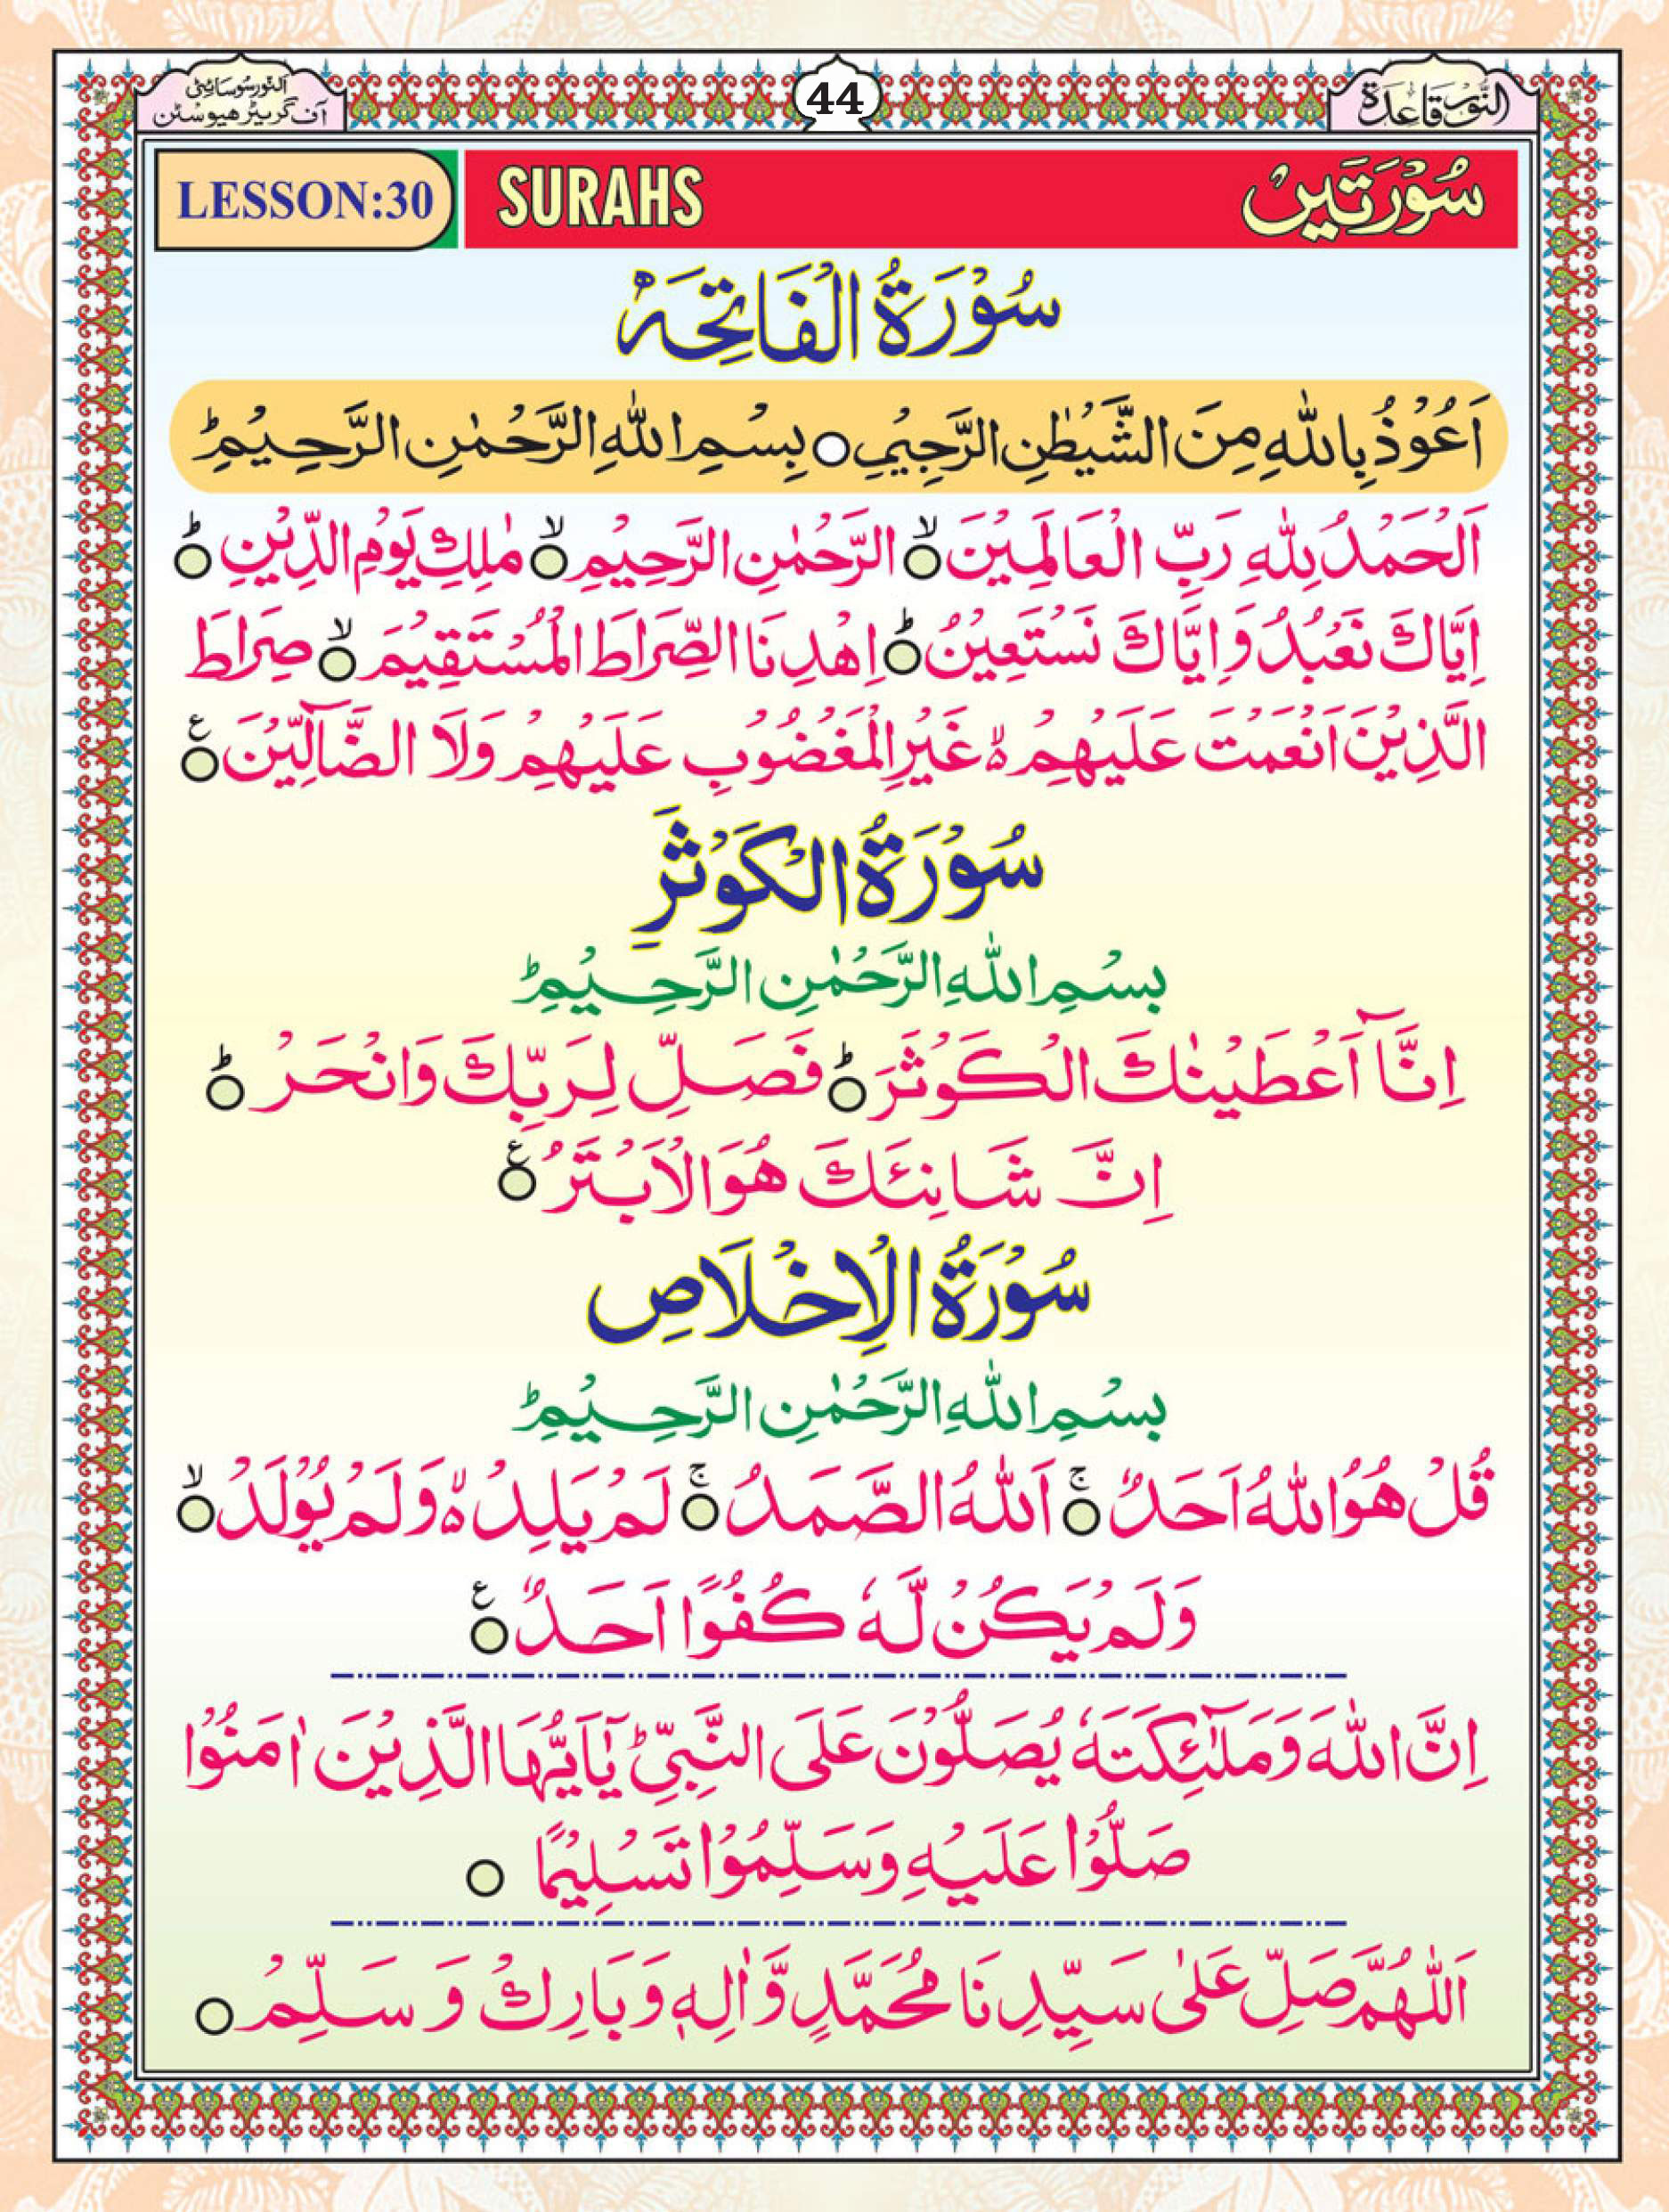 النور سوسائٹی
آف گریٹر ھیوسٹن
44
النُّوْر قَاعِدَة
LESSON:30
SURAHS
سُوْرَتَيْں
سُوْرَةُ الْفَاتِحَہْ
اَعُوْذُ بِاللّٰهِ مِنَ الشَّيْطٰنِ الرَّجِيْمِ ○ بِسْمِ اللّٰهِ الرَّحْمٰنِ الرَّحِيْمِ ؕ
اَلْحَمْدُ لِلّٰهِ رَبِّ الْعَالَمِيْنَ ○ۙ الرَّحْمٰنِ الرَّحِيْمِ ○ۙ مٰلِكِ يَوْمِ الدِّيْنِ ○ؕ
اِيَّاكَ نَعْبُدُ وَ اِيَّاكَ نَسْتَعِيْنُ ○ؕ اِهْدِنَا الصِّرَاطَ الْمُسْتَقِيْمَ ○ۙ صِرَاطَ
الَّذِيْنَ اَنْعَمْتَ عَلَيْهِمْ ۙ۬ غَيْرِ الْمَغْضُوْبِ عَلَيْهِمْ وَلَا الضَّآلِّيْنَ ○ع
سُوْرَةُ الْكَوْثَرِ
بِسْمِ اللّٰهِ الرَّحْمٰنِ الرَّحِيْمِ ؕ
اِنَّاۤ اَعْطَيْنٰكَ الْكَوْثَرَ ○ؕ فَصَلِّ لِرَبِّكَ وَانْحَرْ ○ؕ
اِنَّ شَانِئَكَ هُوَ الْاَبْتَرُ ○ع
سُوْرَةُ الْاِخْلَاصِ
بِسْمِ اللّٰهِ الرَّحْمٰنِ الرَّحِيْمِ ؕ
قُلْ هُوَ اللّٰهُ اَحَدٌ ○ۚ اَللّٰهُ الصَّمَدُ ○ۚ لَمْ يَلِدْ ۙ۬ وَلَمْ يُوْلَدْ ○ۙ
وَلَمْ يَكُنْ لَّهٗ كُفُوًا اَحَدٌ ○ع
اِنَّ اللّٰهَ وَمَلٰٓئِكَتَهٗ يُصَلُّوْنَ عَلَى النَّبِيِّ ؕ يٰۤاَيُّهَا الَّذِيْنَ اٰمَنُوْا
صَلُّوْا عَلَيْهِ وَسَلِّمُوْا تَسْلِيْمًا ○
اَللّٰهُمَّ صَلِّ عَلٰى سَيِّدِنَا مُحَمَّدٍ وَّاٰلِهٖ وَبَارِكْ وَ سَلِّمْ ○